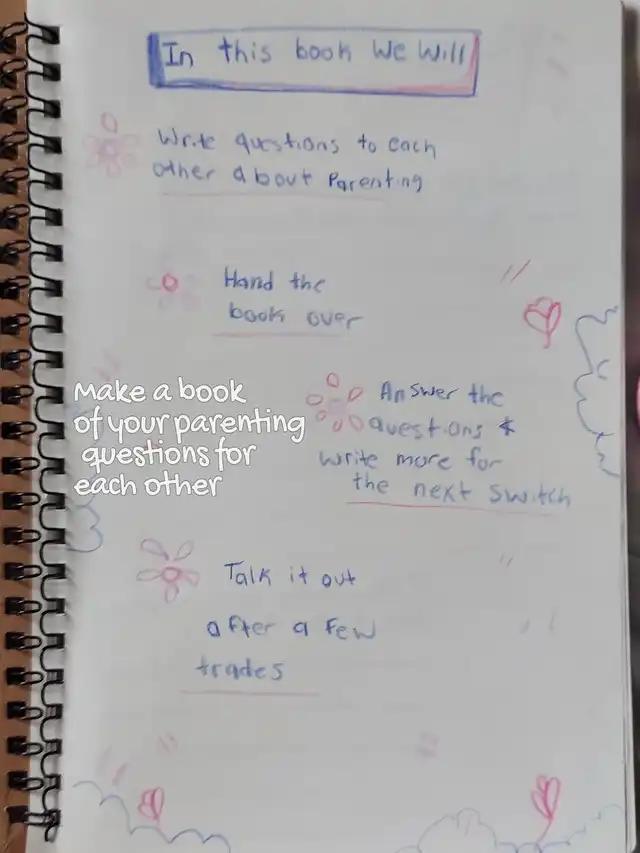 In this book we will
Write questions to each
other about Parenting
Hand the
book over
Make a book
of your parenting
questions for
each other
Answer the
questions &
write more for
the next switch
Talk it out
after a few
trades